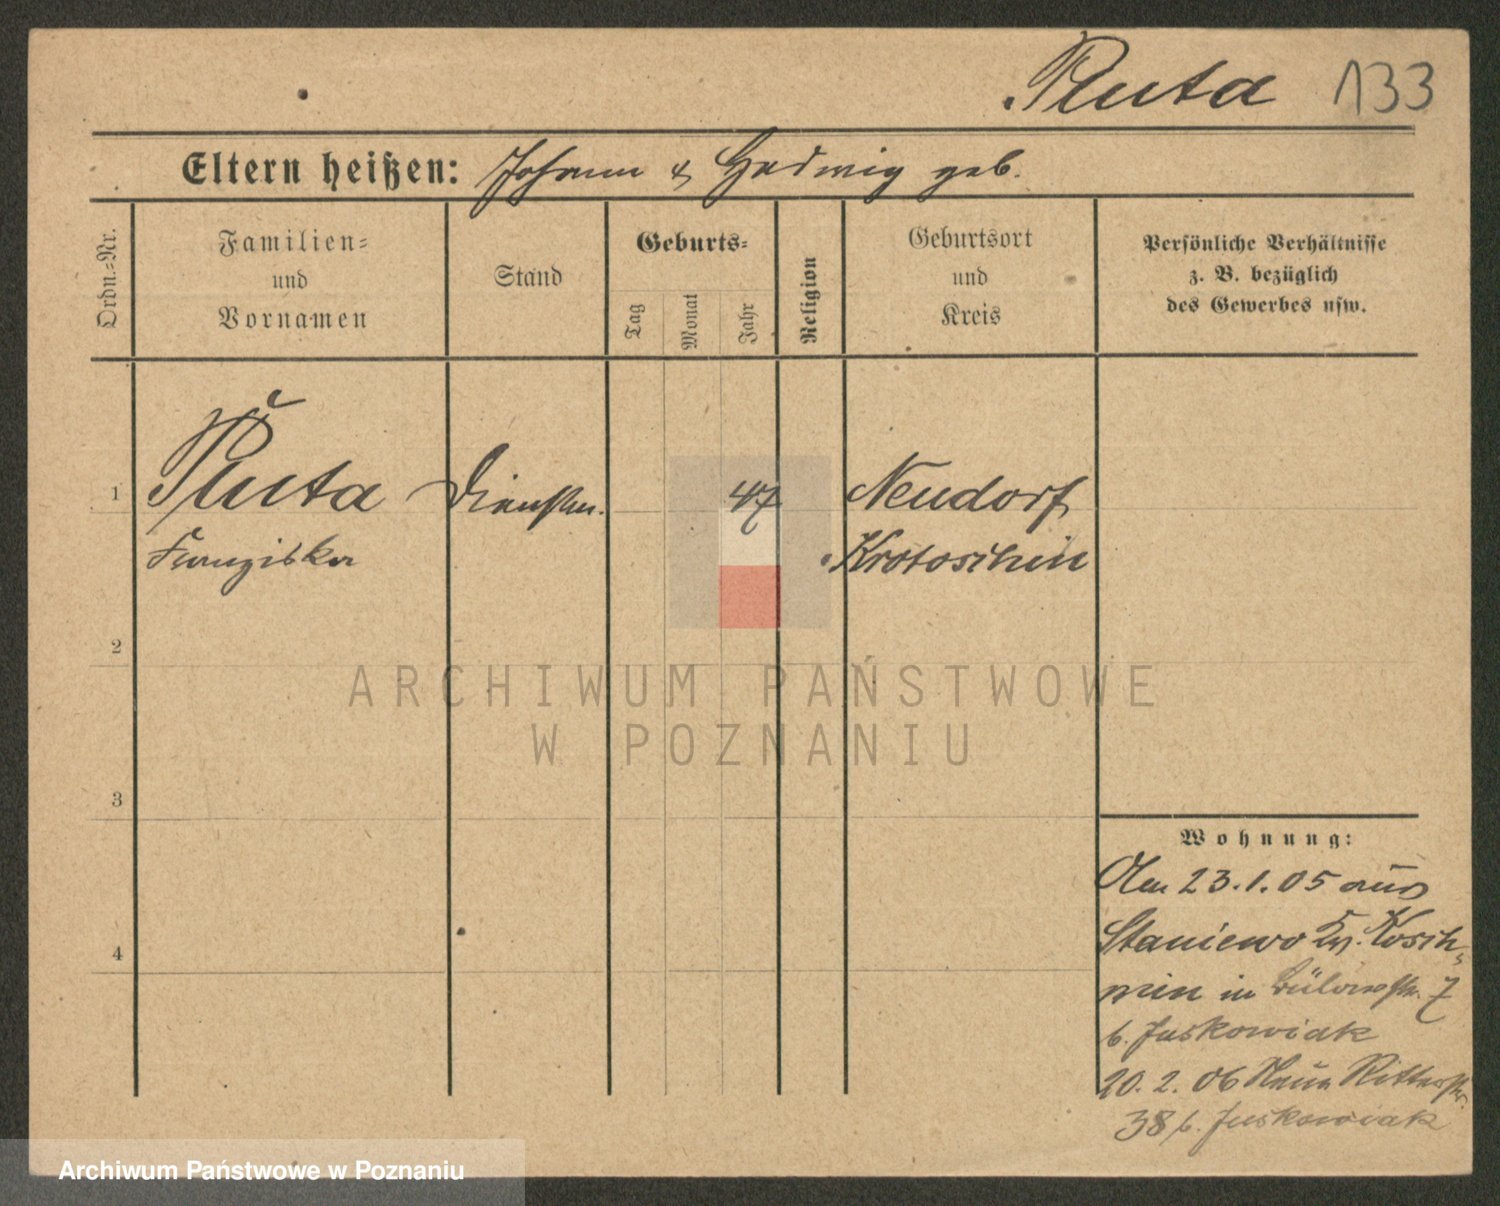 Ruta 133
Eltern heißen: Johann & Hedwig geb.
Ordn.-Nr.
Familien-
und
Vornamen
Stand
Geburts-
Tag
Monat
Jahr
Religion
Geburtsort
und
Kreis
Persönliche Verhältnisse
z. B. bezüglich
des Gewerbes usw.
1
Ruta
Franziska
Dienstm.
47
Neudorf
Krotoschin
2
3
4
Wohnung:
Am 23.1.05 aus
Staniewo Kr. Kosch-
min in Bülowstr. 7
b. Juskowiak
20.2.06 Neue Ritterstr.
38 b. Juskowiak
ARCHIWUM PAŃSTWOWE
W POZNANIU
Archiwum Państwowe w Poznaniu